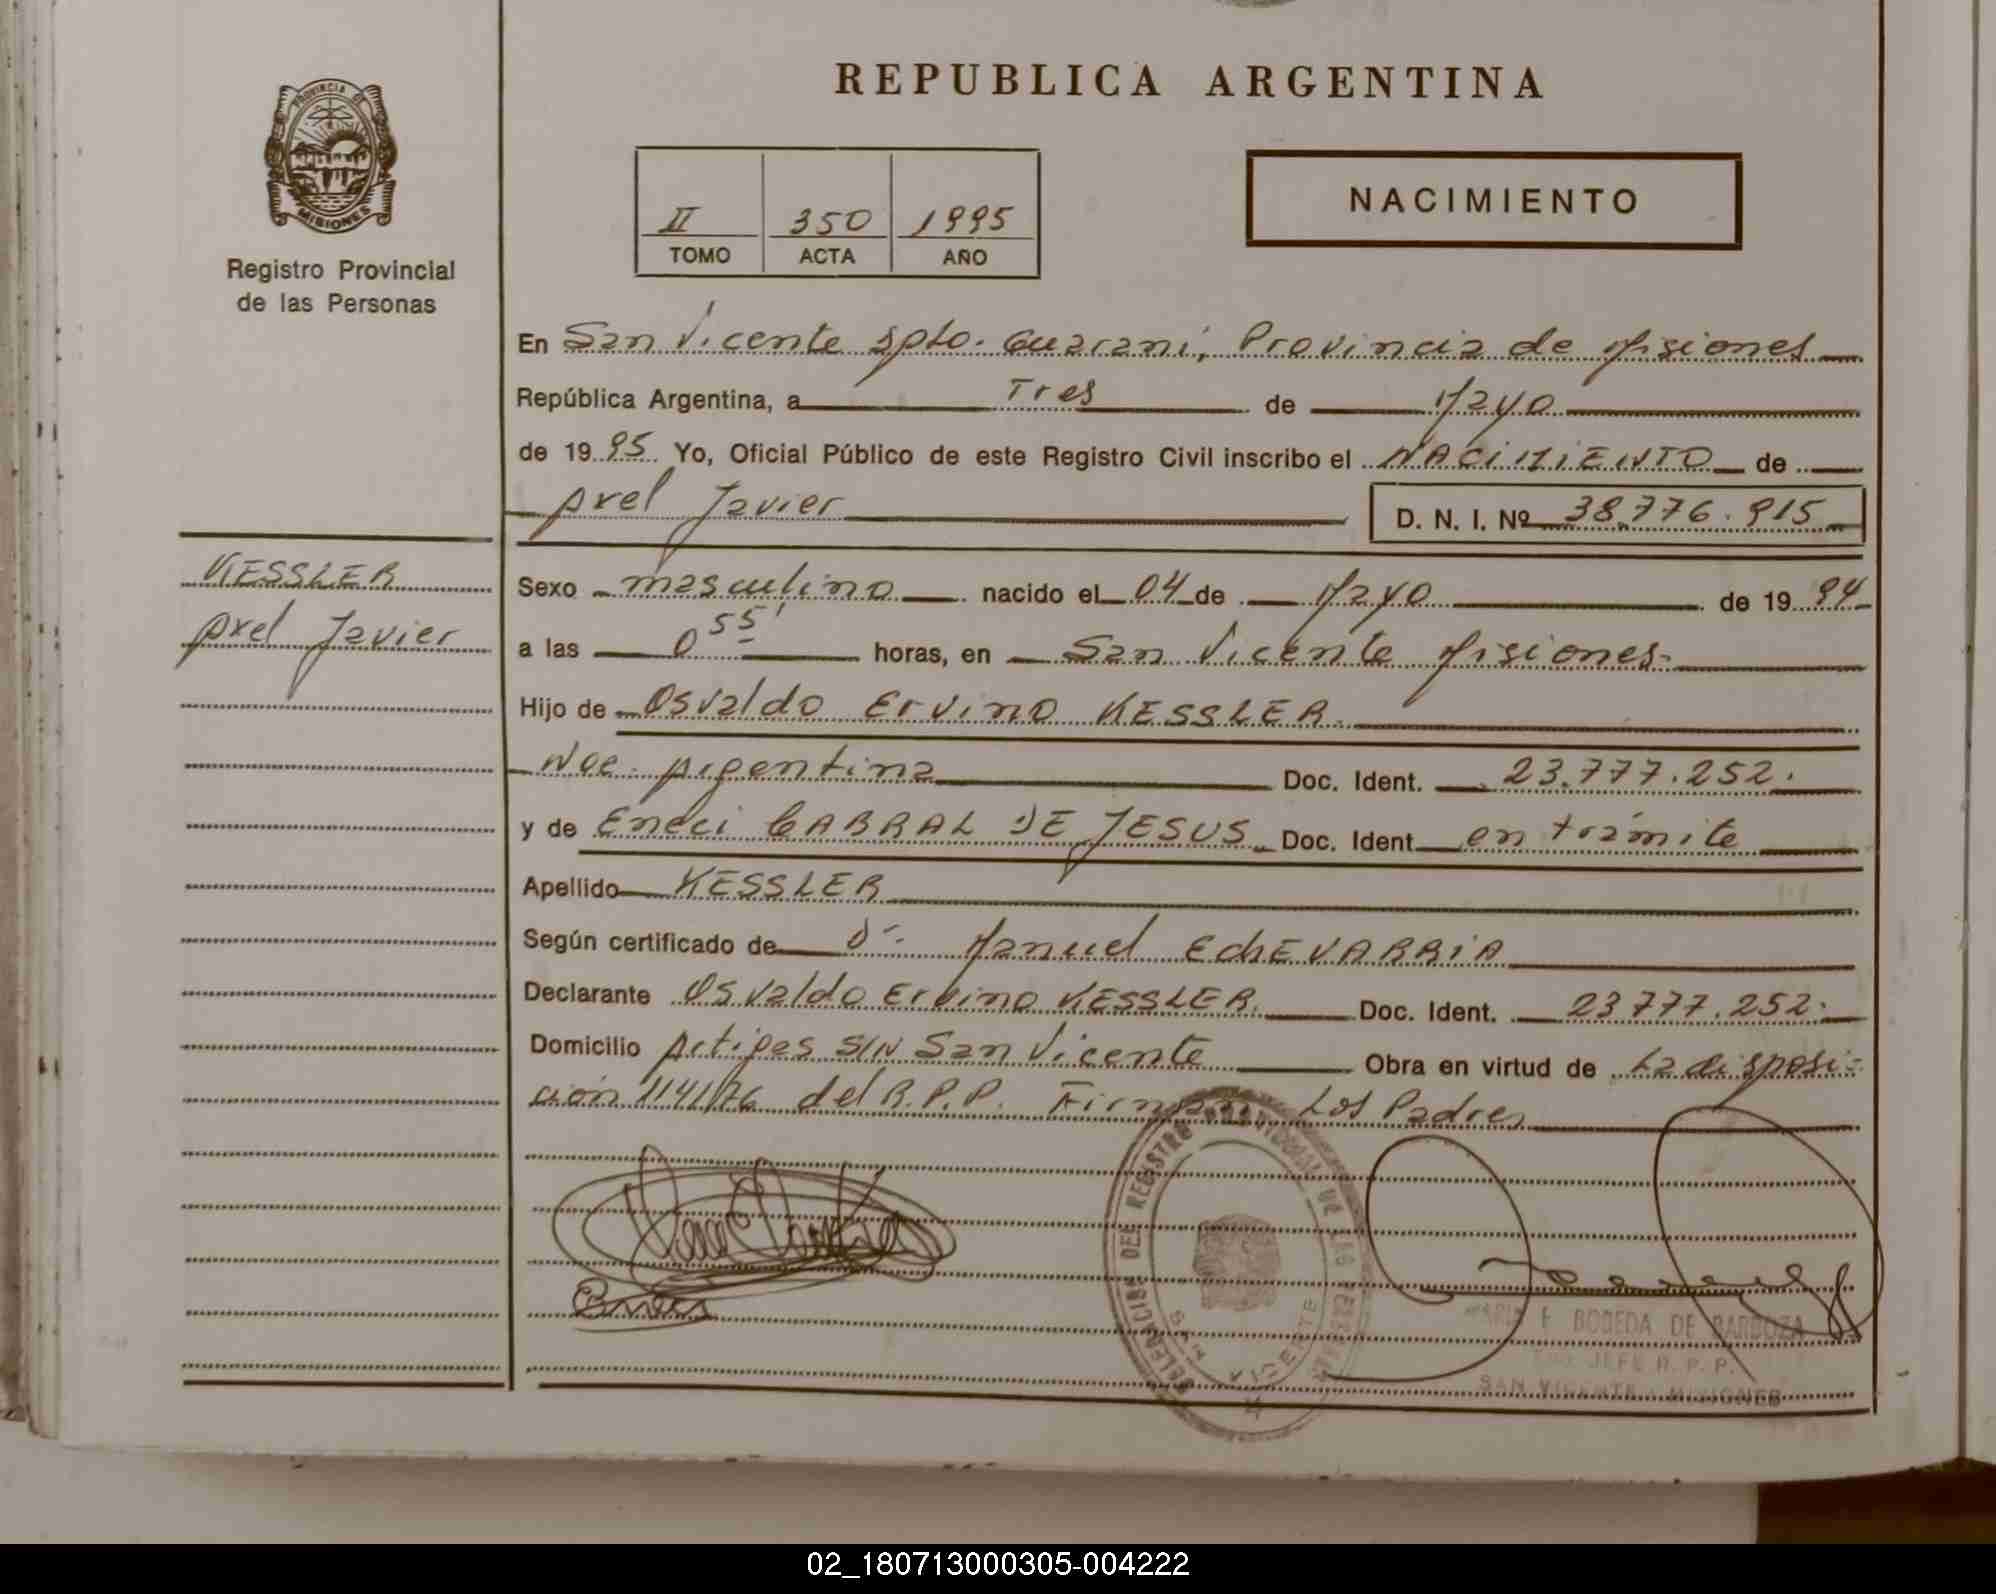 REPUBLICA ARGENTINA
PROVINCIA DE
MISIONES
Registro Provincial
de las Personas
II 350 1995
TOMO ACTA AÑO
NACIMIENTO
En San Vicente Dpto. Guarani, Provincia de Misiones
República Argentina, a Tres de Mayo
de 1995 Yo, Oficial Público de este Registro Civil inscribo el NACIMIENTO de
Axel Javier D. N. I. Nº 38.776.915
KESSLER
Axel Javier
Sexo masculino nacido el 04 de Mayo de 1994
a las 0 55' horas, en San Vicente Misiones
Hijo de Osvaldo Ervino KESSLER
Nac. Argentina Doc. Ident. 23.777.252.
y de Eneci CABRAL DE JESUS Doc. Ident en trámite
Apellido KESSLER
Según certificado de Dr. Manuel EchEVARRIA
Declarante Osvaldo Ervino KESSLER. Doc. Ident. 23777.252.
Domicilio Artigas S/N San Vicente Obra en virtud de La disposi-
ción 114/76 del R.P.P. Firman Los Padres
DELEGACION DEL REGISTRO PROVINCIAL DE LAS PERSONAS
SAN VICENTE
MARIA F BOBEDA DE BARBOZA
JEFE R. P. P.
SAN VICENTE - MISIONES
02_180713000305-004222